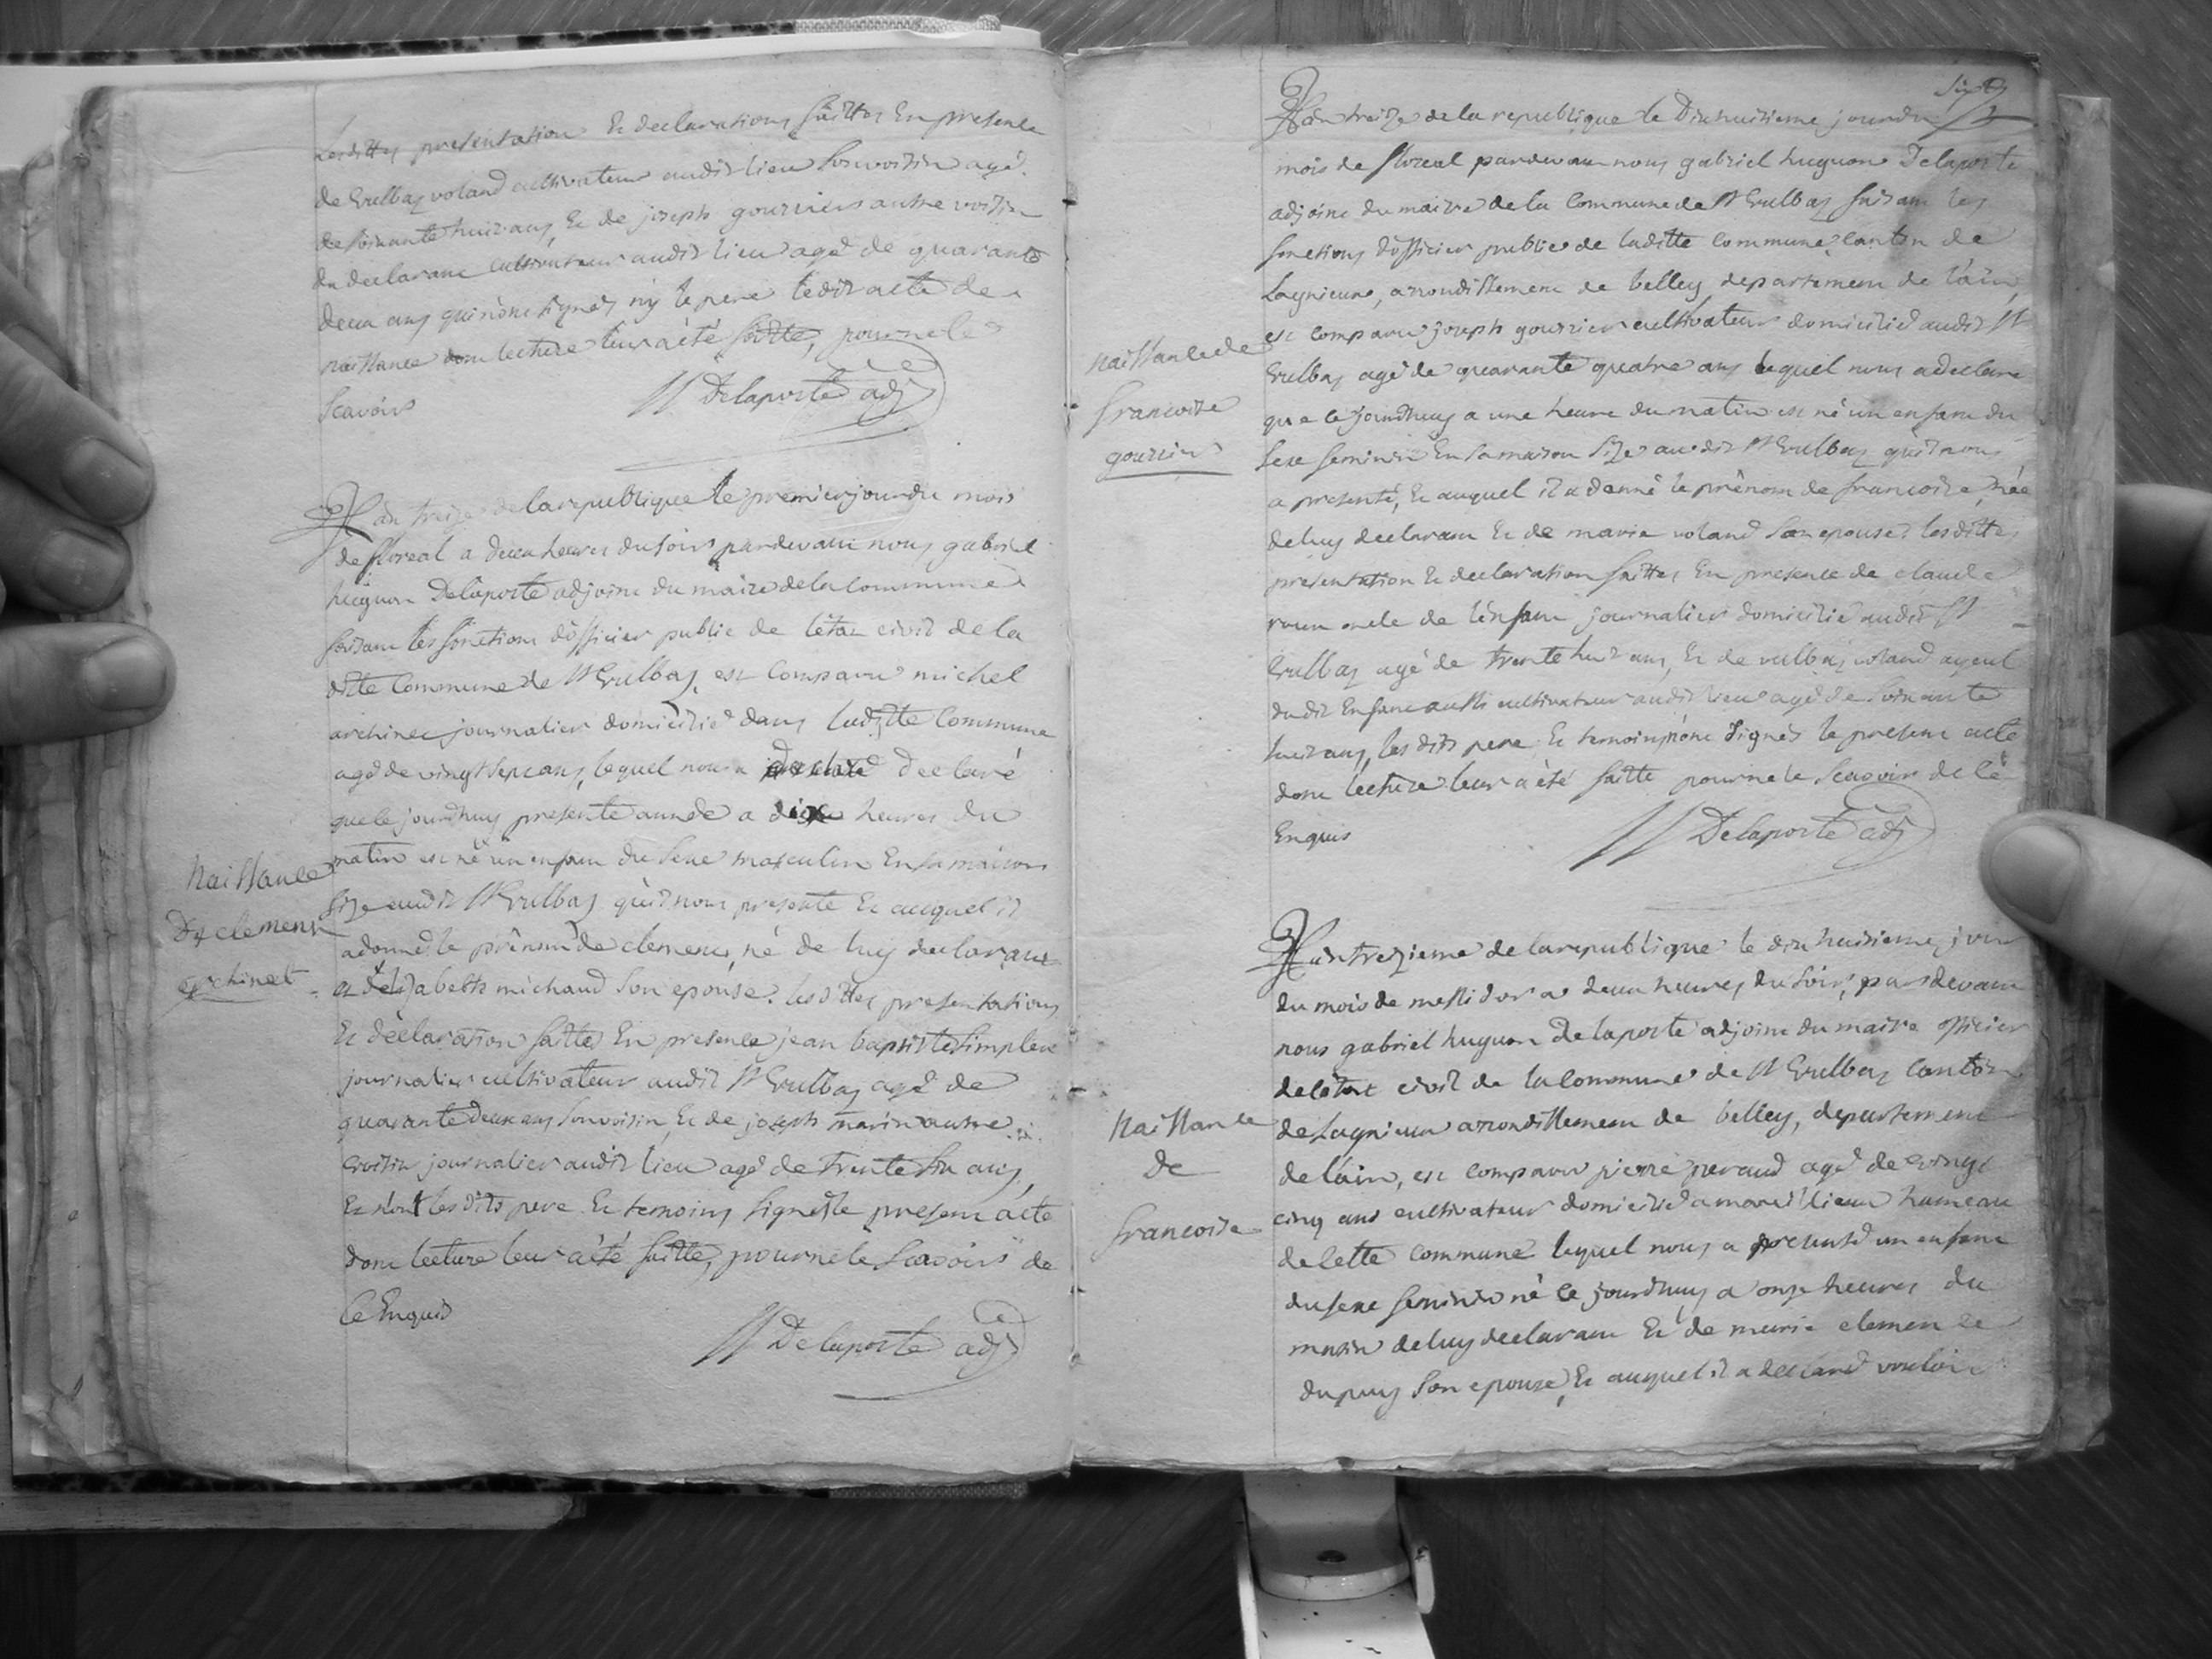 Lesdittes presentation Et declarations faittes En presence
de Vulbaz voland cultivateur audit lieu son voisin agé
de soixante huit ans, Et de joseph gourrier autre voisin
du declarant cultivateur audit lieu agé de quarante
deux ans qui n'ont signés ny le pere ledit acte de
naissance dont lecture leur a été faitte, pour ne le
scavoir
Delaporte adj
L'an treize de la republique le premier jour du mois
de floreal a deux heures du soir pardevant nous gabriel
huguon Delaporte adjoint du maire de la commune
faisant les fonctions d'officier public de l'état civil de la
ditte Commune de St Vulbaz, est Comparu michel
archinet journalier domicilié dans laditte Commune
agé de vingt sept ans, lequel nous a declaré
que le jourdhuy presente année a dix heures du
matin est né un enfant du sexe masculin En sa maison
size audit St Vulbaz qu'il nous presente Et auquel il
a donné le prénom de clement, né de luy declarant
et d'elizabeth michaud son epouse. lesdittes presentations
Et déclaration faitte En presence jean baptiste simplex
journalier cultivateur audit St Vulbaz agé de
quarante deux ans son voisin, Et de joseph marin autre
voisin journalier audit lieu agé de trente six ans,
Et n'ont lesdits pere Et temoins signés le present acte
dont lecture leur a été faitte, pour ne le scavoir de
ce Enquis
Delaporte adj
Naissance
De clement
archinet
L'an treize de la republique le Dix huitieme jour du
mois de floreal pardevant nous gabriel huguon Delaporte
adjoint du maire de la Commune de St Vulbaz faisant les
fonctions d'officier public de laditte commune, canton de
Lagnieux, arrondissement de belley departement de l'ain,
est comparu joseph gourrier cultivateur domicilié audit St
Vulbaz agé de quarante quatre ans lequel nous a declaré
que le jourdhuy a une heure du matin est né un enfant du
sexe feminin En sa maison size audit St Vulbaz qu'il nous
a presenté, Et auquel il a donné le prénom de francoise, née
de luy declarant Et de marie voland son epouse, lesdittes
presentation Et declaration faittes En presence de claude
roux oncle de l'enfant journalier domicilié audit St
Vulbaz agé de trente huit ans, Et de vulbaz voland ayeul
dudit Enfant aussi cultivateur audit lieu agé de soixante
huit ans, lesdits pere Et temoin n'ont signés le present acte
dont lecture leur a été faitte pour ne le scavoir de ce
Enquis
Delaporte adj
naissance de
francoise
gourrier
L'an treizieme de la republique le dix huitieme jour
du mois de messidor a deux heures du soir, pardevant
nous gabriel huguon Delaporte adjoint du maire officier
de l'état civil de la Commune de St Vulbaz Canton
de Lagnieux arrondissement de belley, departement
de l'ain, est comparu pierre peraud agé de vingt
cinq ans cultivateur domicilié a marcillieux hameau
de cette commune lequel nous a presenté un enfant
du sexe feminin né le jourdhuy a onze heures du
matin de luy declarant Et de marie clemence
dupuy son epouse, Et auquel il a declaré vouloir
Naissance
de
francoise